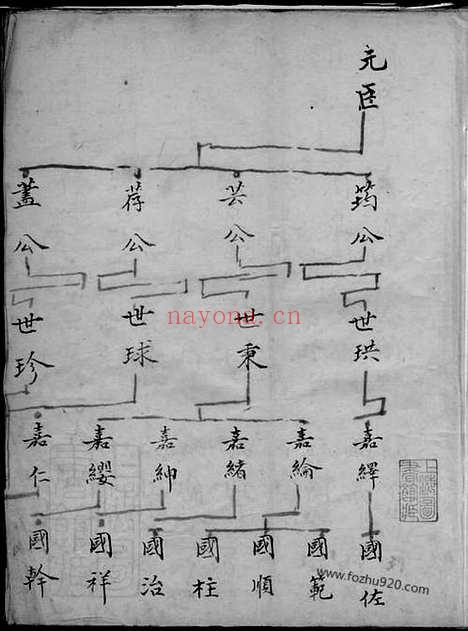 元臣
筠公 芸公 荐公 蓋公
世珙 世秉 世球 世珍
嘉繹 嘉綸 嘉緒 嘉紳 嘉纓 嘉仁
國佐 國範 國順 國柱 國治 國祥 國幹
nayona.cn
www.fozhu920.com